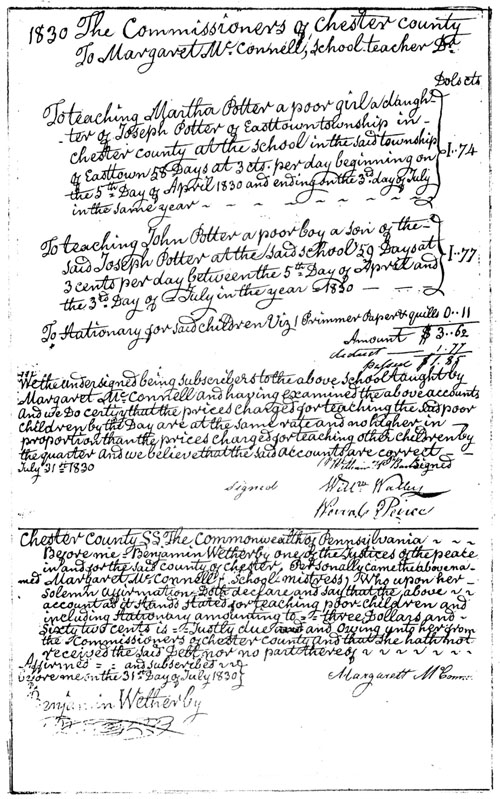 1830 The Commissioners of Chester county
To Margaret Mc.Connell, School teacher Dr
Dols cts
To teaching Martha Potter a poor girl a daugh-
ter of Joseph Potter of Easttown township in-
chester county at the school in the said township
of Easttown 58 Days at 3 cts. per day beginning on
the 5th Day of April 1830 and ending on the 3rd day of July
in the same year - - - - - - - -
1..74
To teaching John Potter a poor boy a son of the-
said Joseph Potter at the said school 59 Days at
3 cents per day between the 5th Day of April and
the 3rd Day of July in the year 1830 - - - -
1..77
To Stationary for said children Viz 1 Primmer Paper & quills 0..11
Amount $ 3..62
deduct 1.77
$1.85
We the undersigned being subscribers to the above School taught by
Margaret Mc.Connell and having examined the above accounts
And we Do certify that the prices charged for teaching the said poor
children by the Day are at the same rate and no higher in
proportion than the prices charged for teaching other children by
the quarter And we believe that the said accounts are correct-
July 31st 1830
signed
signed
Chester County SS The Commonwealth of Pennsylvania - - -
Before me- Benjamin Wetherby one of the Justices of the peace
in and for the said county of Chester, Personally came the above na-
med Margaret Mc.Connell (School mistress) Who upon her-
Solemn Affirmation Doth declare and say that the above - -
account as it stands stated for teaching poor children and
including stationary amounting to three Dollars and-
Sixty two cents is Justly due and owing unto her from
the Commissioners of chester county and that she hath not
received the said Debt nor no part thereof - - - - - -
Affirmed and subscribed
before me on the 31st Day of July 1830
Margarett
Benjamin Wetherby